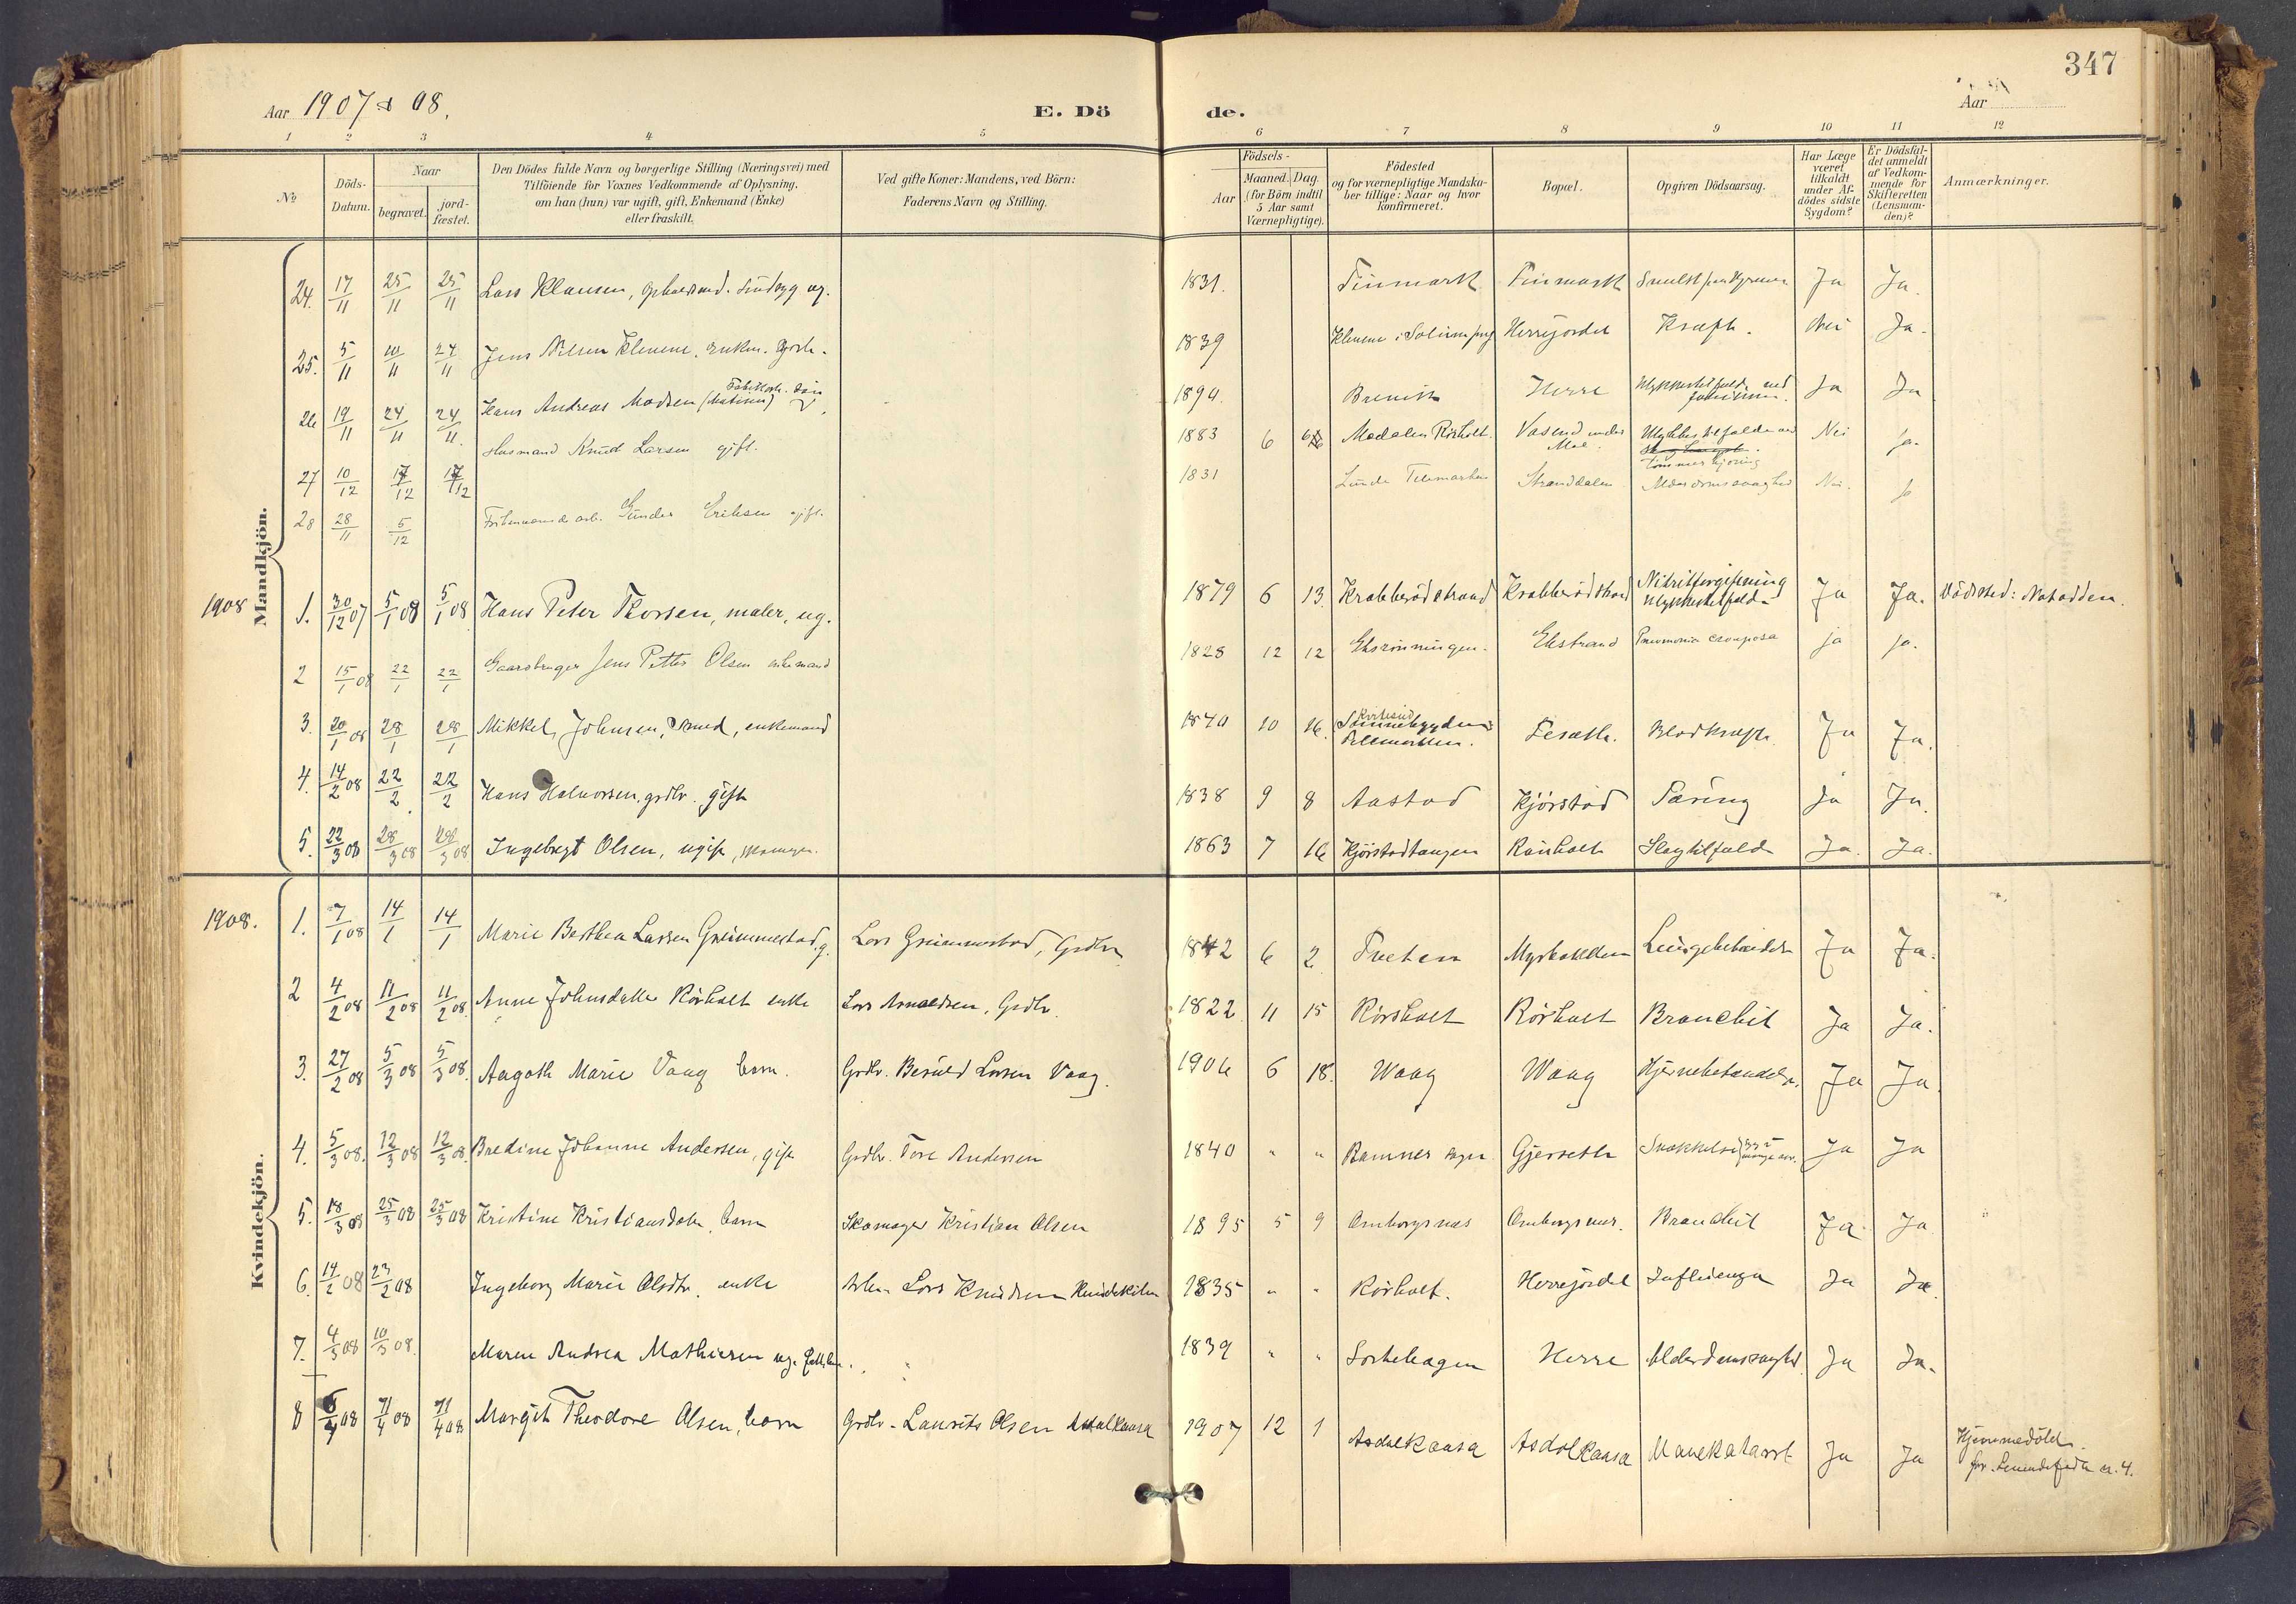 347
Aar 1907 & 08.
E. Dö
de.
Aar
1 2 3 4 5 6 7 8 9 10 11 12
No
Döds-Datum.
Naar
begravet.
jord-fæstet.
Den Dödes fulde Navn og borgerlige Stilling (Næringsvei) med
Tilföiende for Voxnes Vedkommende af Oplysning,
om han (hun) var ugift, gift, Enkemand (Enke)
eller fraskilt.
Ved gifte Koner: Mandens, ved Börn:
Faderens Navn og Stilling.
Födsels-
Aar
Maaned. Dag
(for Börn indtil
5 Aar samt
Værnepligtige).
Födested
og for værnepligtige Mandska-
ber tillige: Naar og hvor
konfirmeret.
Bopæl.
Opgiven Dödsaarsag.
Har Læge
været
tilkaldt
under Af-
dödes sidste
Sygdom?
Er Dödsfal-
det anmeldt
af Vedkom-
mende for
Skifteretten
(Lensman-
den)?
Anmærkninger.
Mandkjön.
24. 17/11 25/11 25/11 Lars Klausen, ug. 1831. Finmark Finmark Ja Ja.
25. 5/11 10/11 24/11 Jens Nilsen Klevene, enkm. 1839 Klevene i Solum Herrejordet Kræft. Nei Ja.
26 19/11 24/11 24/11 Hans Andreas Madsen 1894. Brevik Herre Ulykkestilfælde ved Ja Ja
27 10/12 17/12 17/12 Husmand Knud Larsen gift. 1883 6 Rörholt. Vasend under Nei ja.
tømmerkjöring
28 28/11 5/12 Gunder Eriksen gift. 1831 Lunde Telemarken Stranddalen Alderdomssvaghed Nei. ja
1908
1. 30/12 07 5/1 08 5/1 08 Hans Peter Thorsen, maler, ug. 1879 6 13. Krabberödstrand Krabberödstrand Nitritforgiftning Ulykkestilfælde Ja Ja. Dödsted: Notodden.
2 15/1 08 22/1 22/1 Gaardbruger Jens Petter Olsen enkemand 1828 12 12 Ekstrand Pneumonia crouposa ja ja.
3. 20/1 08 28/1 28/1 Mikkel Johnsen, Smed, enkemand 1840 10 16. Kviteseid Telemarken. Feseth. Blodkræft. Ja Ja.
4. 14/2 08 22/2 22/2 Hans Halvorsen, grdbr. gift 1838 9 8 Aastad Kjörstad Tæring Ja Ja.
5. 22/3 08 28/3 08 28/3 08 Ingebregt Olsen, ugift, 1863 7 16 Kjörstadtangen Rörholt Slagtilfælde Ja. Ja.
Kvindekjön.
1908.
1. 7/1 08 14/1 14/1 Marie Berthea Larsen Grummestad, g. Lars Grummestad, Grdbr. 1842 6 2 Tveten Lungebetændelse Ja Ja.
2 4/2 08 11/2 08 11/2 08. Anne Johnsdatter Rörholt enke Lars Amundsen, Grdbr. 1822 11 15 Rörholt Rörholt Bronchit Ja Ja.
3. 27/2 08 5/3 08 5/3 08. Aagoth Marie Vaag barn. Grdbr. Beruld Larsen Vaag. 1906 6 18. Waag Waag Hjernebetændelse. Ja Ja.
4. 5/3 08. 12/3 08 12/3 08. Bredine Johanne Andersen, gift Grdbr. Tore Andersen 1840 " " Ramnes Gjerseth Ja Ja
5. 18/3 08 25/3 08 25/3 08 Kristine Kristiansdatr. barn Skomager Kristian Olsen 1895 5 9 Omborgsnes Omborgsnes. Bronchit Ja Ja
6. 14/2 08 23/2 08 Ingeborg Marie Olsdtr. enke Arb. Lars Knudsen 1835 " " Rörholt. Herrejordet Influenza Ja Ja.
7. 4/3 08 10/3 08. Maren Andrea Mathiesen ug. 1839 " " Herre Alderdomssvaghed Ja Ja.
8 6/4 08 11/4 08 11/4 08 Margit Theodore Olsen, barn Grdbr. Laurits Olsen Asdalkaasa 1907 12 1 Asdalkaasa Asdalkaasa Mavekatarrh Ja Ja Hjemmedöbt.